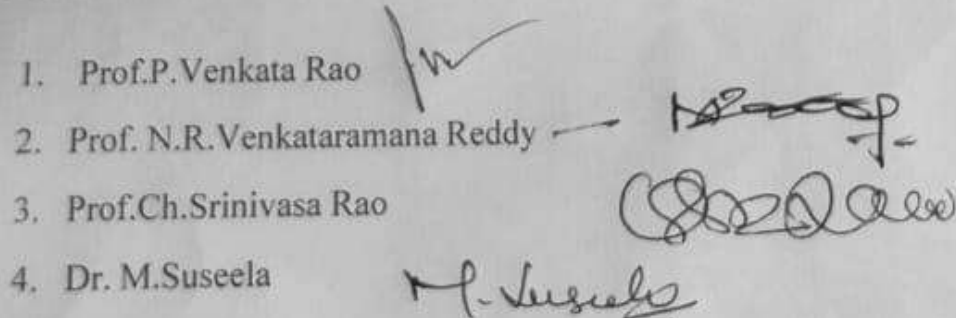 1. Prof.P.Venkata Rao
2. Prof. N.R.Venkataramana Reddy
3. Prof.Ch.Srinivasa Rao
4. Dr. M.Suseela M. Suseela